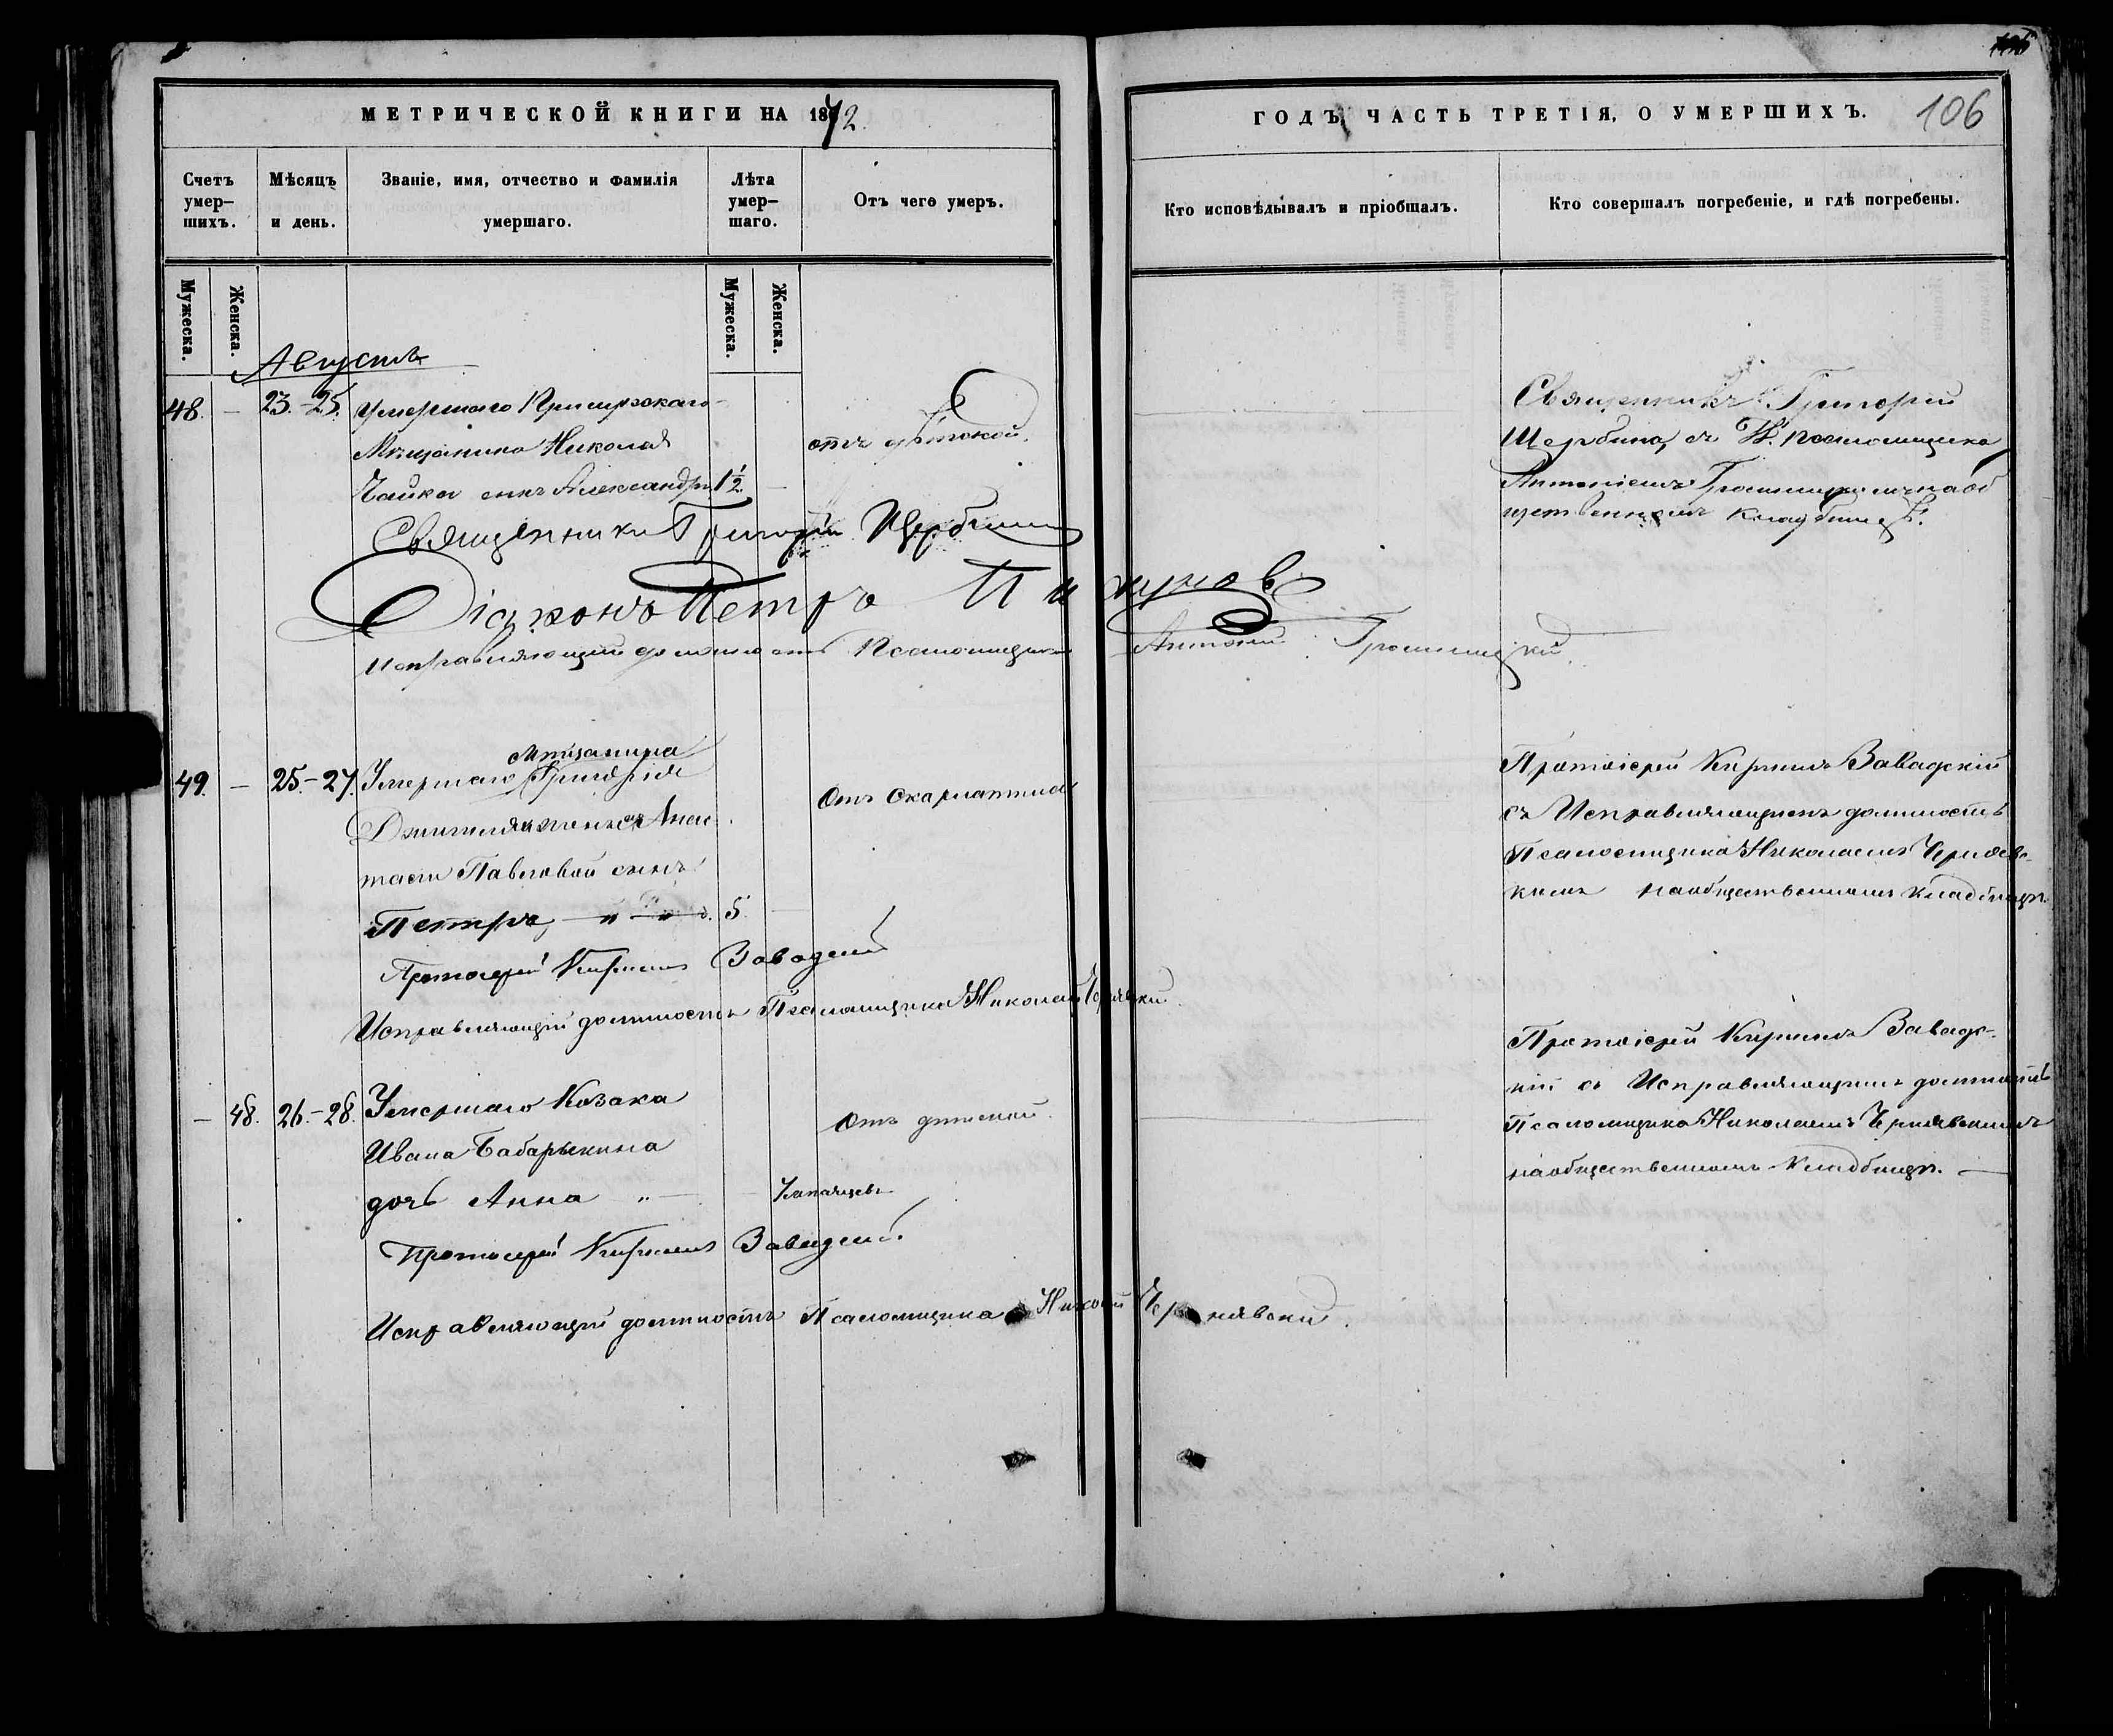 МЕТРИЧЕСКОЙ КНИГИ НА 1872.
Счетъ умер-шихъ.
Мѣсяцъ и день.
Званіе, имя, отчество и фамилія умершаго.
Лѣта умер-шаго.
Отъ чего умеръ.
Мужеска.
Женска.
Мужеска.
Женска.
Августъ
48. — 23.-25. Умершаго
Мѣщанина Николая отъ дѣтской.
Чайки сынъ Александръ 1½ —
Священникъ Григорій Щербина
Діаконъ Петръ
Исправляющій должность Псаломщика Антоній
Мѣщанина
49. — 25.-27. Умершаго Григорія Отъ Скарлатины
Анас-
тасіи Павловой сынъ
Петръ — " — " 5. —
Протоіерей Кириллъ Завадскій
Исправляющій должность Псаломщика Николай Чернявскій
— 48. 26.-28. Умершаго Козака Отъ дѣтской.
Ивана Бабарыкина
дочь Анна "
Протоіерей Кириллъ Завадскій.
Исправляющій должность Псаломщика Николай Чернявскій.
ГОДЪ, ЧАСТЬ ТРЕТІЯ, О УМЕРШИХЪ.
106
Кто исповѣдывалъ и пріобщалъ.
Кто совершалъ погребеніе, и гдѣ погребены.
Священникъ Григорій
Щербина, съ псаломщика
Антоніемъ на об
щественномъ кладбищѣ.
Протоіерей Кириллъ Завадскій
съ Исправляющимъ должность
Псаломщика Николаемъ Чернявс-
кимъ на общественномъ кладбищѣ.
Протоіерей Кириллъ Завадс-
кій съ Исправляющимъ должность
Псаломщика Николаемъ Чернявскимъ
на общественномъ кладбищѣ. —